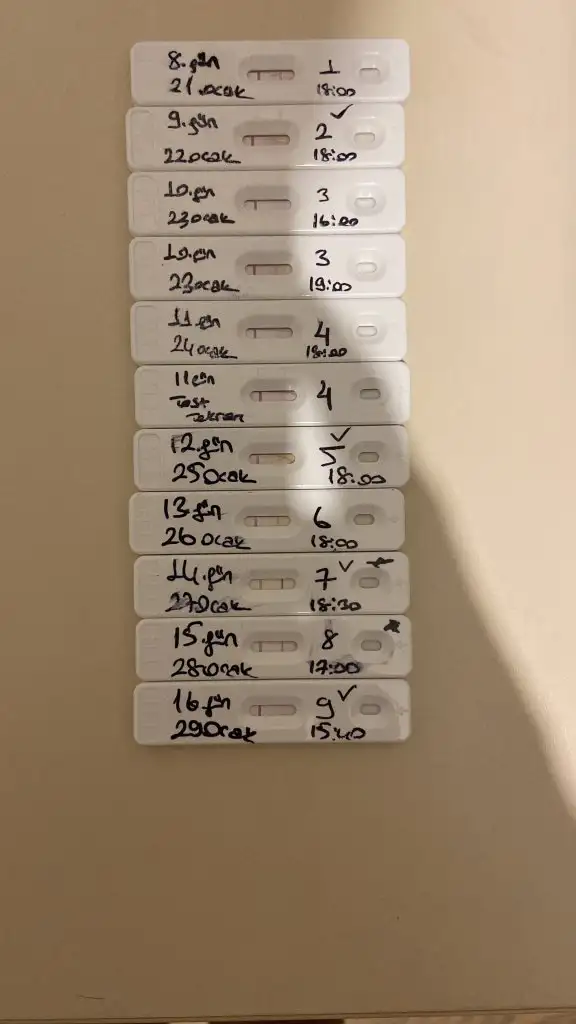 8.gün 1
21.ocak 18:00
9.gün 2
22ocak 18:00
10.gün 3
23ocak 16:00
10.gün 3
23ocak 19:00
11.gün 4
24ocak 18:00
11gün 4
Test Tekrarı
12.gün 5
25Ocak 18:00
13.gün 6
26ocak 18:00
14.gün 7
27Ocak 18:30
15.gün 8
28Ocak 17:00
16.gün 9
29Ocak 15:40